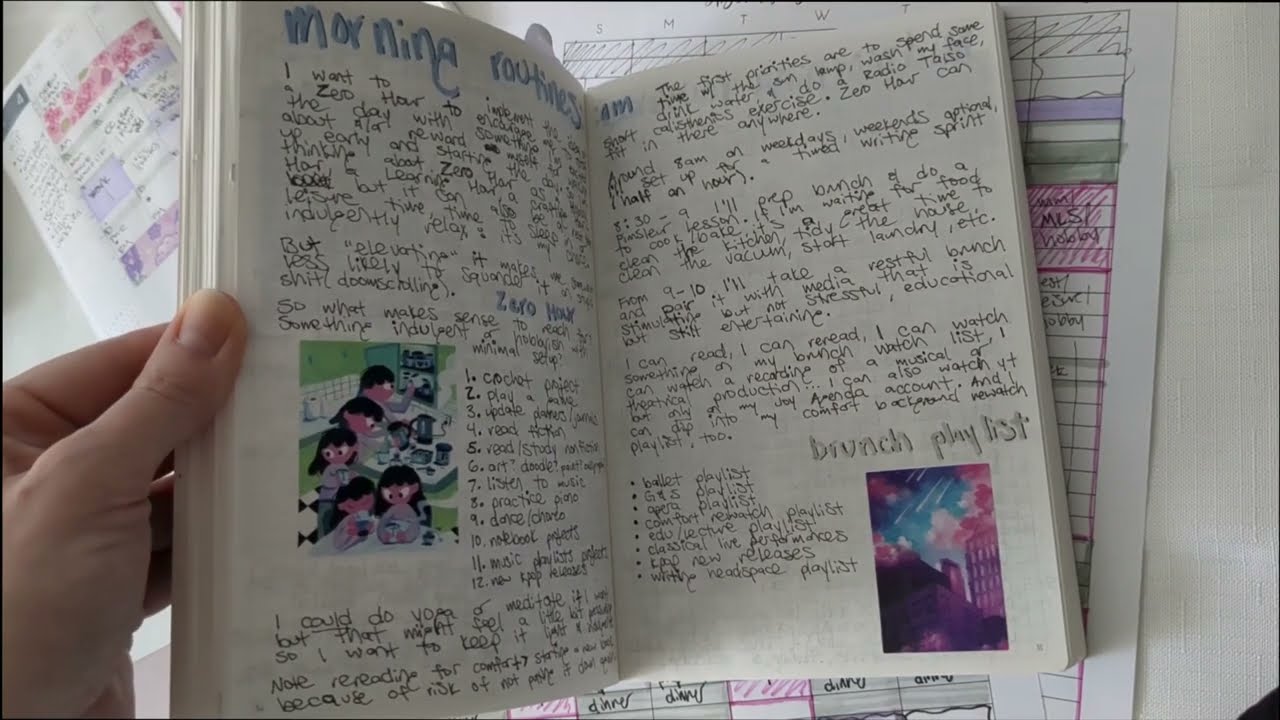 morning routines
I want to implement the
a Zero Hour to encourage
the day with something I'm
about
up early and starting the day
thinking about Zero Hour as
Hour a Learning Hour
but it can also be
leisure time, time to sleep in or
indulgently relax: it's my choice
But "elevating" it makes me
less likely to squander it on
shit (doomscrolling).
So what makes sense to reach for?
Something indulgent & hobbyish with
minimal setup?
Zero Hour
1. crochet project
2. play a game
3. update planners/journals
4. read fiction
5. read/study nonfiction
6. art? doodle? paint?
7. listen to music
8. practice piano
9. dance/choreo
10. notebook projects
11. music playlists projects
12. new kpop releases
I could do yoga or meditate if I want
but that might feel a little bit
so I want to keep it light & indulgent
Note rereading for comfort > starting a new book
because of risk of not putting it down
AM
The first priorities are to spend some
time w/ the sun lamp, wash my face,
drink water & do a Radio Taiso
short calisthenics exercise. Zero Hour can
fit in there anywhere.
Around 8am on weekdays, weekends optional,
I set up for a timed writing sprint
(half an hour).
8:30 - 9 I'll prep brunch & do a
Pimsleur lesson. If I'm waiting for food
to cook/bake, it's a great time to
clean the kitchen, tidy the house,
clean the vacuum, start laundry, etc.
From 9-10 I'll take a restful brunch
and pair it with media that is
stimulating but not stressful, educational
but still entertaining.
I can read, I can reread, I can watch
something on my brunch watch list, I
can watch a recording of a musical or
theatrical production... I can also watch yt
but only on my Joy Agenda account. And I
can dip into my comfort background rewatch
playlist, too.
brunch playlist
• ballet playlist
• G&S playlist
• opera playlist
• comfort rewatch playlist
• edu/lecture playlist
• classical live performances
• kpop new releases
• writing headspace playlist
S M T W T
MLS/
hobby
hobby
dinner dinner dinner dinner